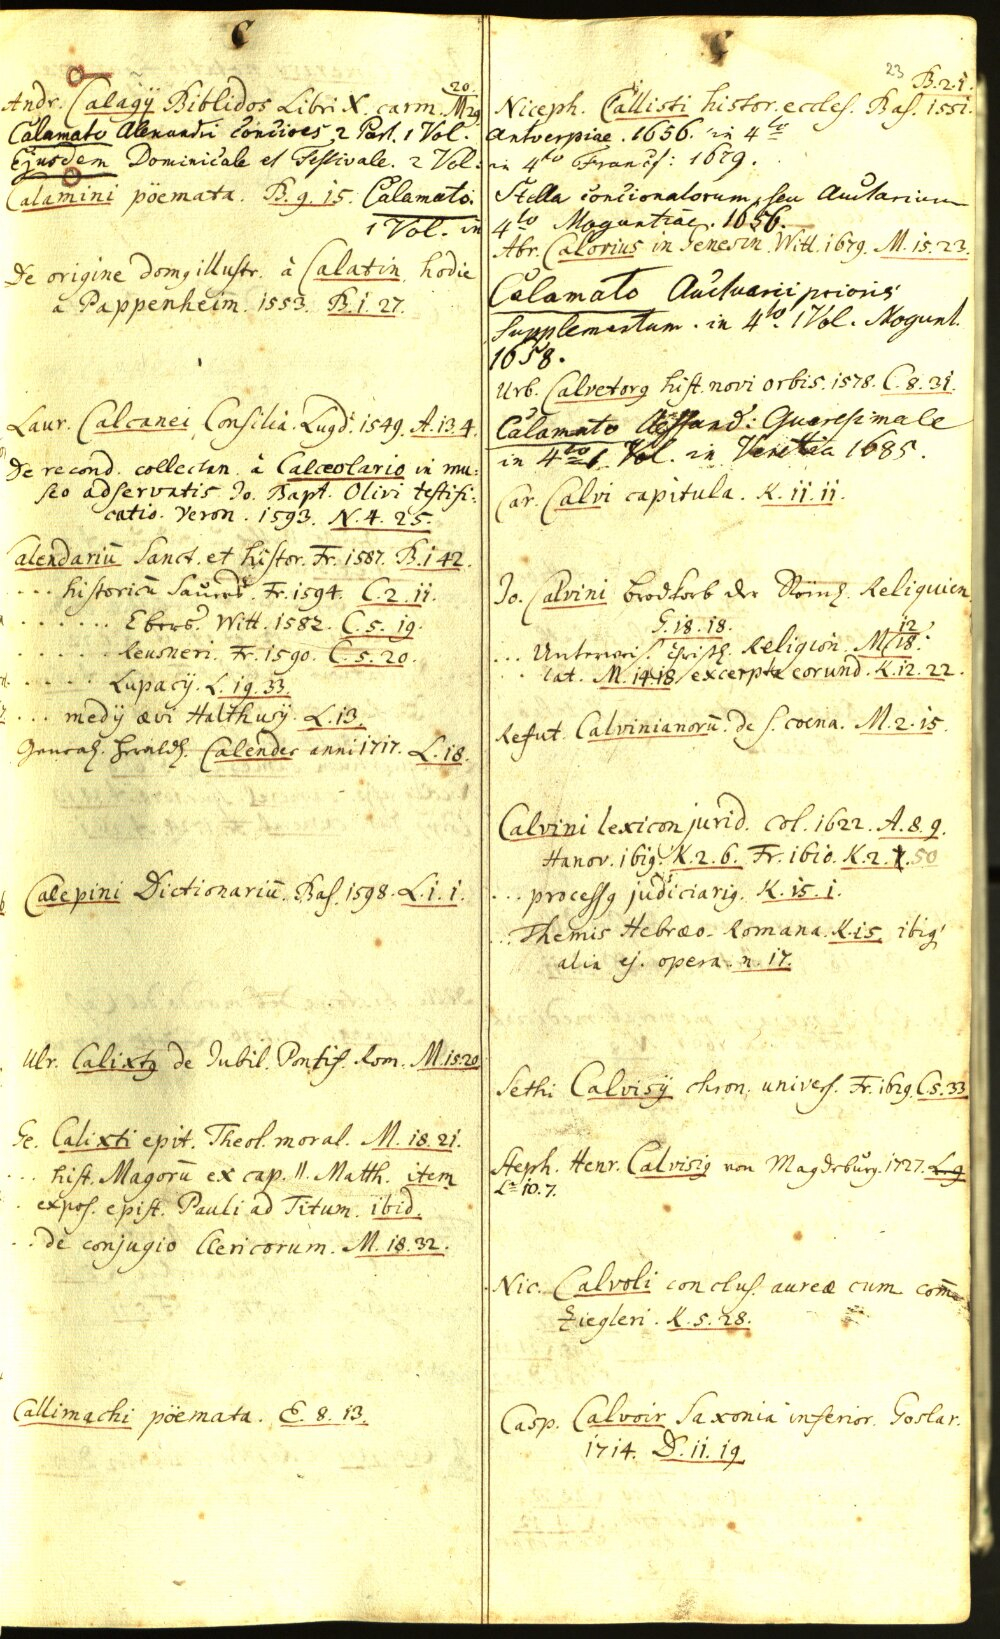 C
Andr. Calagÿ Biblidos Libri X. carm. M 29
20
Calamato Alexandri Concioes 2 Part. 1 Vol.
Ejusdem Dominicale et Festivale. 2 Vol:
Calamini pöemata. B. 9. 15. Calamato.
1 Vol. in
De origine domg illustr. à Calatin hodie
à Pappenheim. 1553. B. 1. 27.
Laur. Calcanei Consilia. Lugd. 1549. A. 13. 4.
De recond. collectan. à Calceolario in mu:
seo adservatis Jo. Bapt. Olivi testifi:
catio. Veron. 1593. N. 4. 25.
Calendariu Sanct. et histor. Fr. 1587. B. 1 42.
... historicu Saurs. Fr. 1594. C. 2. 11.
...... Ebers. Witt. 1582. C. 5. 19.
..... Reusneri. Fr. 1590. C. 5. 20.
..... Lupacÿ. L. 19. 33.
... medÿ ævi Halthusÿ. L. 13.
Calender anni 1717. L. 18.
Calepini Dictionariu. Bas. 1598. L. 1. 1.
Ulr. Calixtg de Jubil. Pontif. Rom. M. 15. 20
Ge. Calixti epit. Theol. moral. M. 18. 21.
... hist. Magoru ex cap. 11. Matth. item
. expos. epist. Pauli ad Titum. ibid.
.. de conjugio Clericorum. M. 18. 32.
Callimachi pöemata. E. 8. 13.
C
23
B. 2. 1.
Niceph. Callisti histor. eccles. Bas. 1551.
Antverpiae. 1656. in 4to
in 4to Francf: 1679.
Stella Concionatorum, seu Auctarium
4to Moguntiae. 1656.
Abr. Calovius in Genesin. Witt. 1679. M. 15. 23.
Calamato Auctuarii prioris
Supplementum. in 4to. 1 Vol. Mogunt.
1658.
Urb. Calvetong hist. novi orbis. 1578. C. 8. 31.
Calamato Alessand: Quaresimale
in 4to 1 Vol. in Venetia 1685.
Car. Calvi capitula. K. 11. 11.
Jo. Calvini brodkorb der Röm. Reliquien
G. 18. 18.
... Unterricht Christl. Religion. M. 18.
12
.. cat. M. 14. 18. excerpta eorund. K. 12. 22.
Refut. Calvinianoru. de s. coena. M. 2. 15.
Calvini lexicon jurid. Col. 1622. A. 8. 9.
Hanov. 1619. K. 2. 6. Fr. 1610. K. 2. 50
... processg judiciarig. K. 15. 1.
... Themis Hebræo-Romana. K. 15.
alia ej. opera. n. 17.
Sethi Calvisÿ chron. univers. Fr. 1629. C. 5. 33
Steph. Henr. Calvisig von Magdeburg. 1727. L. 9
L= 10. 7.
Nic. Calvoli conclus. aureæ cum com
Ziegleri. K. 5. 28.
Casp. Calvoir Saxonia inferior. Goslar.
1714. D. 11. 19